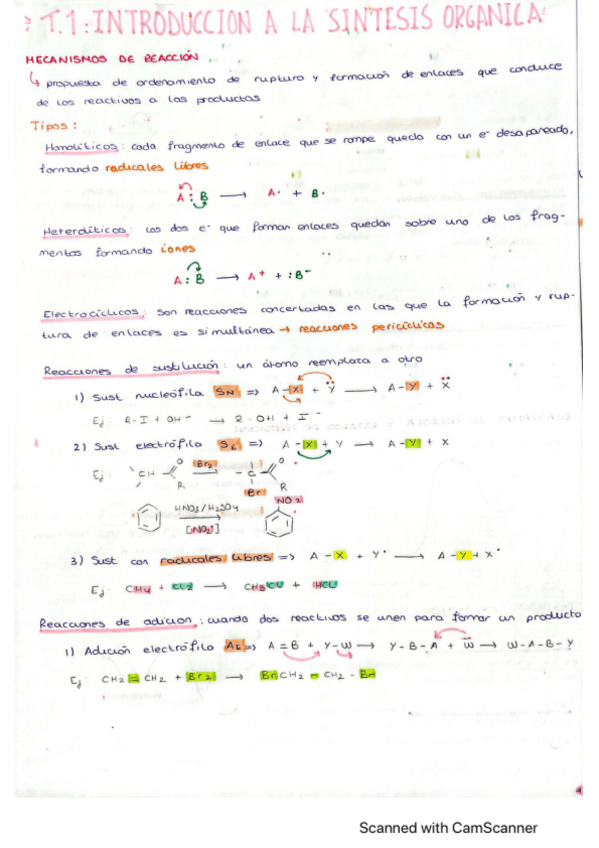 T.1: INTRODUCCION A LA SINTESIS ORGANICA
MECANISMOS DE REACCIÓN
↳ propuesta de ordenamiento de ruptura y formación de enlaces que conduce
de los reactivos a los productos
Tipos:
Homolíticos: cada fragmento de enlace que se rompe queda con un e⁻ desapareado,
formando radicales libres
A : B ⟶ A· + B·
Heterolíticos: los dos e⁻ que forman enlaces quedan sobre uno de los frag-
mentos formando iones
A : B ⟶ A⁺ + :B⁻
Electrocíclicos: son reacciones concertadas en las que la formación y rup-
tura de enlaces es simultánea → reacciones pericíclicas
Reacciones de sustitución: un átomo reemplaza a otro
1) Sust nucleófila SN => A-X + Ÿ ⟶ A-Y + Ẍ
Ej: R-I + OH⁻ ⟶ R-OH + I⁻
2) Sust electrófila SE => A-X + Y ⟶ A-Y + X
Ej: CH O R Br2 ⟶ -C- O R Br
HNO3/H2SO4 [NO2⁺] ⟶ NO2
3) Sust con radicales libres => A-X + Y· ⟶ A-Y + X·
Ej: CH4 + Cl2 ⟶ CH3Cl + HCl
Reacciones de adicion: cuando dos reactivos se unen para formar un producto
1) Adición electrófila AE => A=B + Y-W ⟶ Y-B-A + Ẅ ⟶ W-A-B-Y
Ej CH2=CH2 + Br2 ⟶ BrCH2-CH2-Br
Scanned with CamScanner